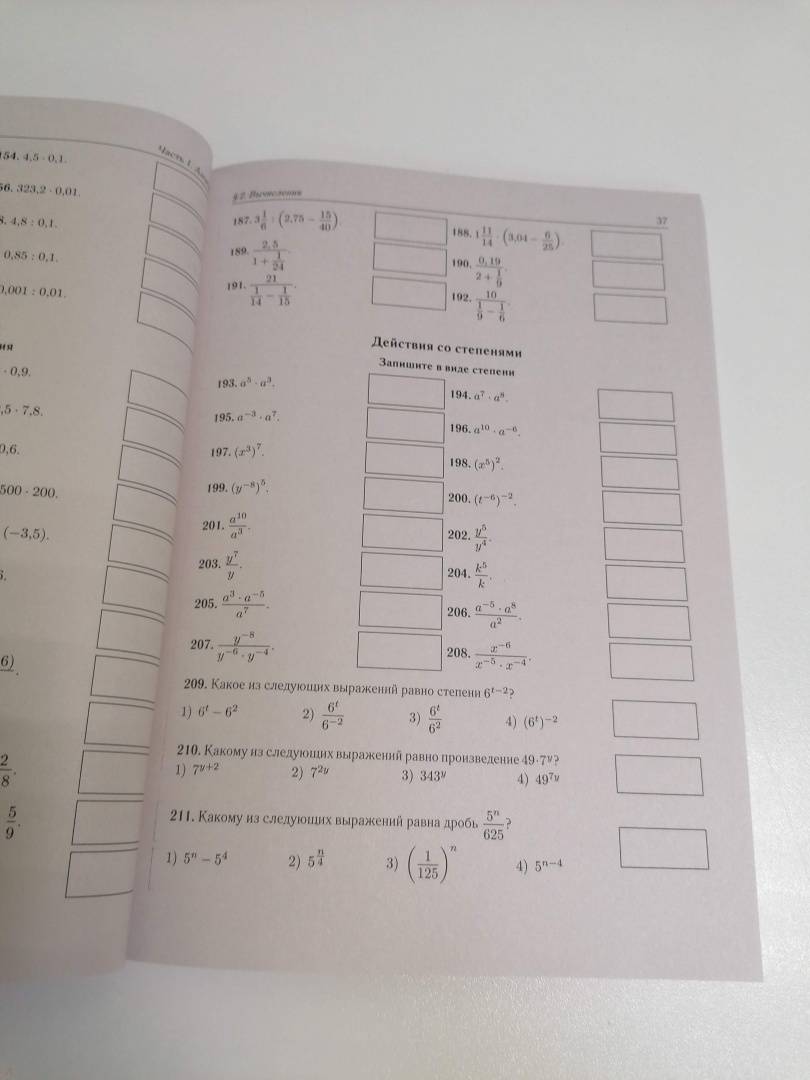 154. 4,5 · 0,1.
56. 323,2 · 0,01.
8. 4,8 : 0,1.
0,85 : 0,1.
0,001 : 0,01.
ия
· 0,9.
,5 · 7,8.
0,6.
500 · 200.
(−3,5).
6)
2/8.
5/9.
Часть 1.
§ 2. Вычисления 37
187. 3 1/6 : (2,75 − 15/40). 188. 1 11/14 · (3,04 − 6/25).
189. 2,5/(1 + 1/24). 190. 0,19/(2 + 1/9).
191. 21/(1/14 − 1/15). 192. 10/(1/9 − 1/6).
Действия со степенями
Запишите в виде степени
193. a⁵ · a³. 194. a⁷ · a⁸.
195. a⁻³ · a⁷. 196. a¹⁰ · a⁻⁶.
197. (x³)⁷. 198. (x⁵)².
199. (y⁻⁸)⁵. 200. (t⁻⁶)⁻².
201. a¹⁰/a³. 202. y⁵/y⁴.
203. y⁷/y. 204. k⁵/k.
205. (a³ · a⁻⁵)/a⁷. 206. (a⁻⁵ · a⁸)/a².
207. y⁻⁸/(y⁻⁶ · y⁻⁴). 208. x⁻⁶/(x⁻⁵ · x⁻⁴).
209. Какое из следующих выражений равно степени 6ᵗ⁻²?
1) 6ᵗ − 6² 2) 6ᵗ/6⁻² 3) 6ᵗ/6² 4) (6ᵗ)⁻²
210. Какому из следующих выражений равно произведение 49·7ʸ?
1) 7ʸ⁺² 2) 7²ʸ 3) 343ʸ 4) 49⁷ʸ
211. Какому из следующих выражений равна дробь 5ⁿ/625?
1) 5ⁿ − 5⁴ 2) 5^(n/4) 3) (1/125)ⁿ 4) 5ⁿ⁻⁴